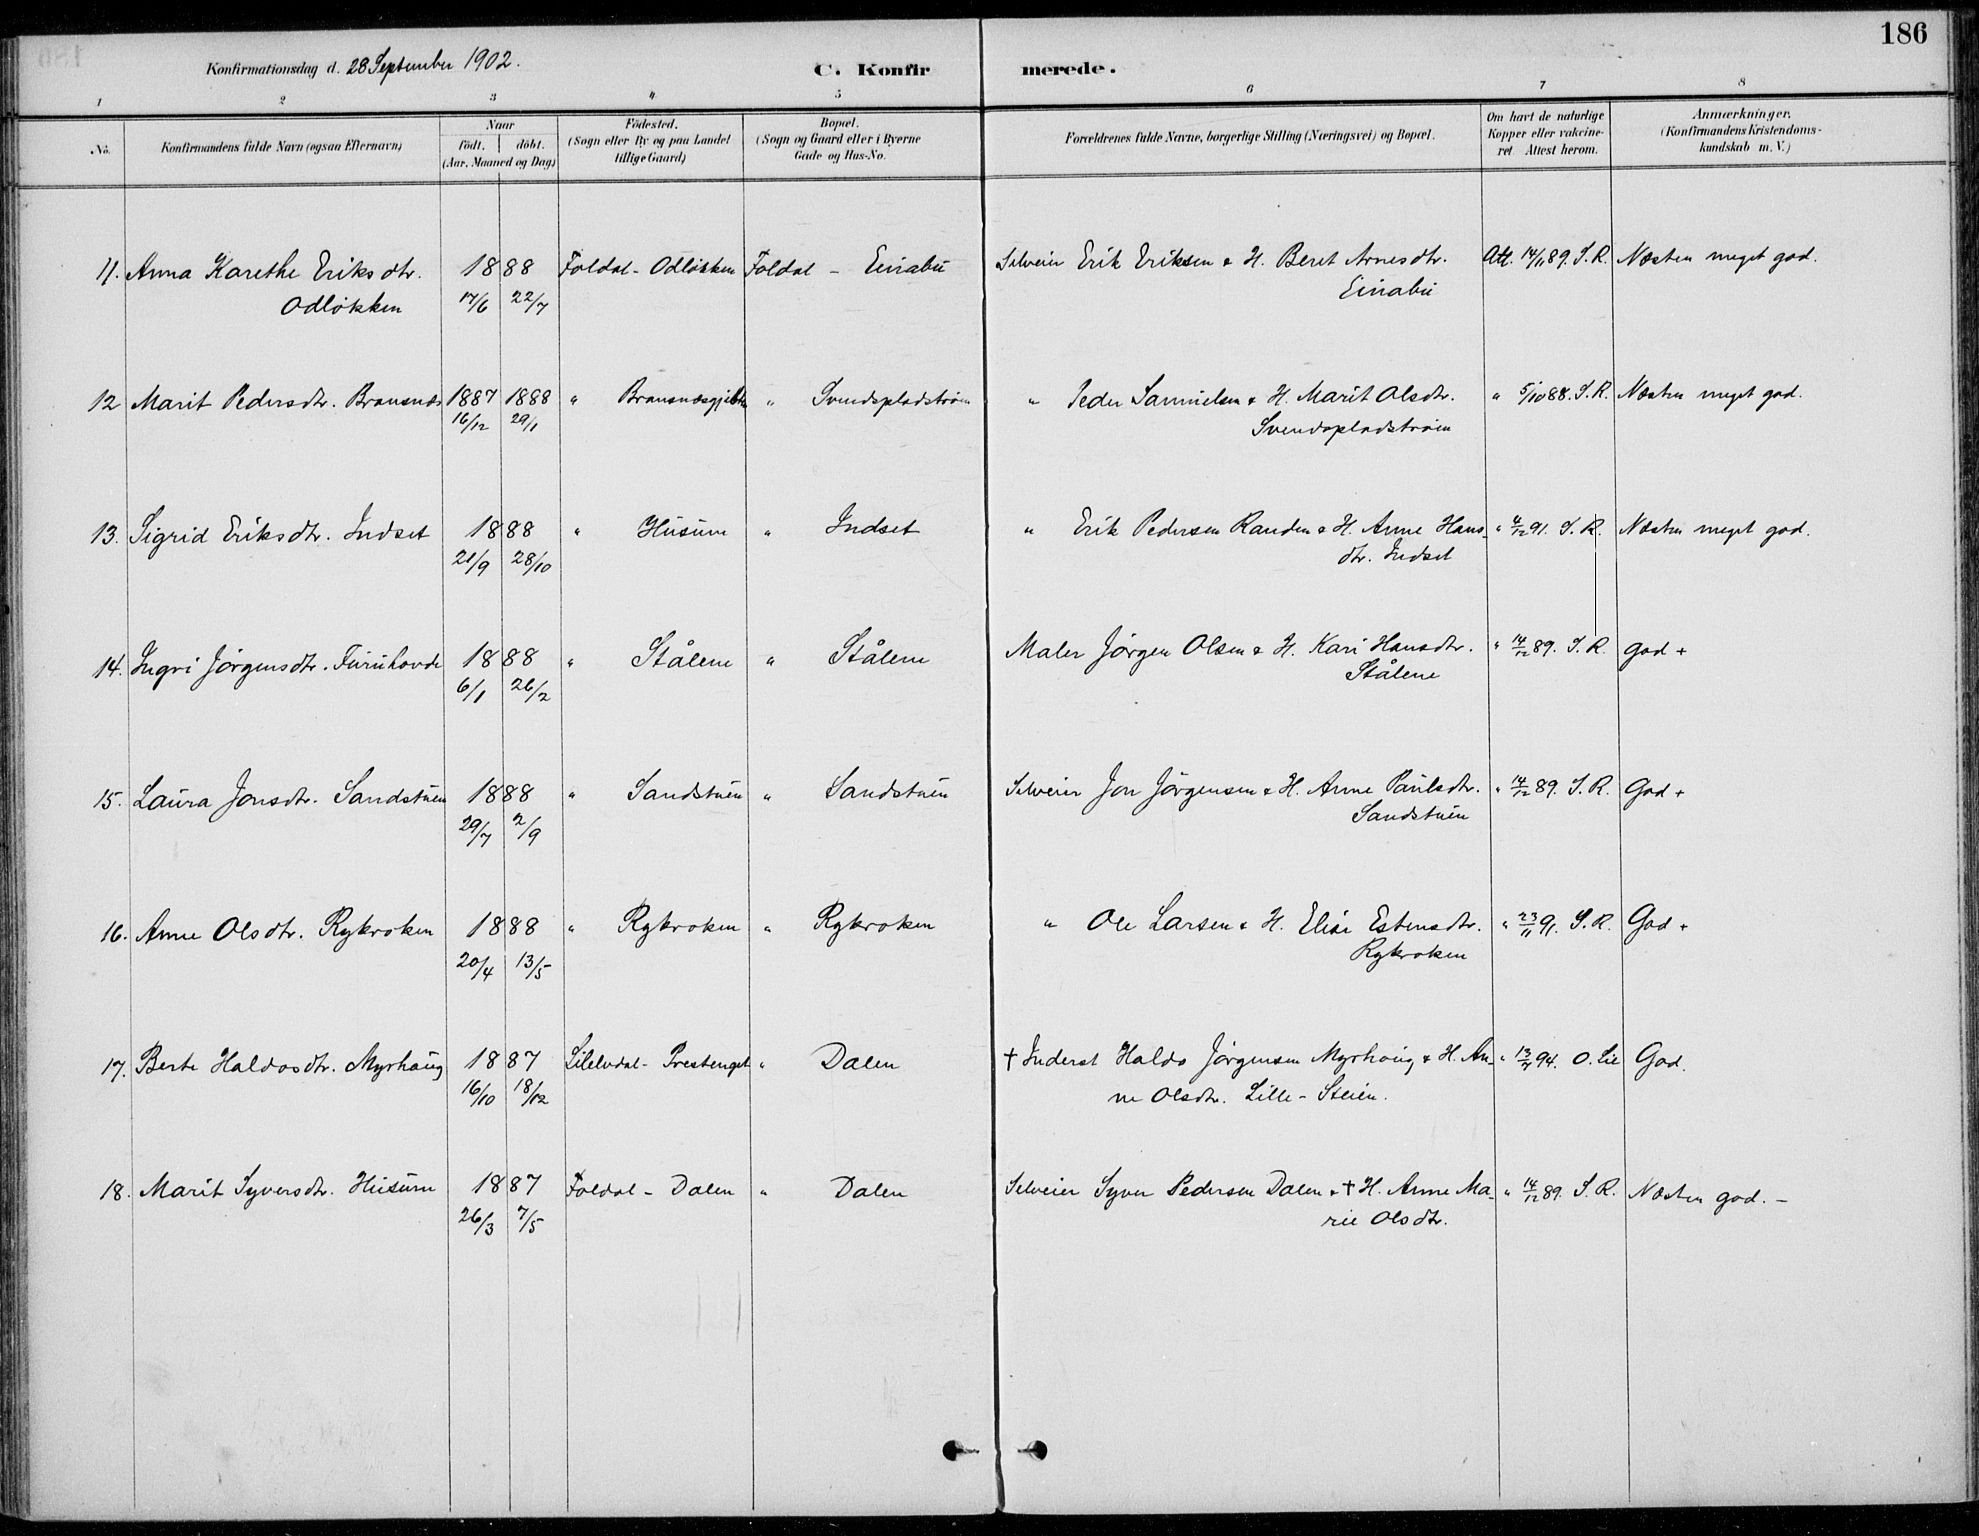 186
Konfirmationsdag d. 28 September 1902.
C. Konfirmerede.
1 2 3 4 5 6 7 8
No.
Konfirmandens fulde Navn (ogsaa Efternavn)
Naar
födt. döbt.
(Aar, Maaned og Dag)
Födested.
(Sogn eller By og paa Landet
tillige Gaard)
Bopæl.
(Sogn og Gaard eller i Byerne
Gade og Hus-No.
Forældrenes fulde Navne, borgerlige Stilling (Næringsvei) og Bopæl.
Om havt de naturlige
Kopper eller vakcine-
ret. Attest herom.
Anmærkninger.
(Konfirmandens Kristendoms-
kundskab m. V.)
11. Anna Karethe Eriksdtr. 1888 Foldal - Odlökken Foldal - Einabu Selveier Erik Eriksen & H. Beret Arnesdtr. Att. 14/11 89. S. R. Næsten meget god.
Odlökken 17/6 22/7 Einabu
12 Marit Pedersdtr. Bransnæs 1887 1888 " " Svendspladströen " Peder Samuelsen & H. Marit Olsdtr. " 5/10 88. S. R. Næsten meget god.
16/12 29/1 Svendspladströen
13. Sigrid Eriksdtr. Indset 1888 " Husum " Indset " Erik Pedersen Randen & H. Anne Hans- " 4/12 91. S. R. Næsten meget god.
21/9 28/10 dtr. Indset
14. Ingri Jörgensdtr. Furuhovde 1888 " Stålene " Stålene Maler Jörgen Olsen & H. Kari Hansdtr. " 14/12 89. S. R. god +
6/1 26/2 Stålene
15. Laura Jonsdtr. Sandstuen 1888 " Sandstuen " Sandstuen Selveier Jon Jörgensen & H. Anne Paulsdtr. " 14/12 89. S. R. God +
29/7 2/9 Sandstuen
16. Anne Olsdtr. Rykroken 1888 " Rykroken " Rykroken " Ole Larsen & H. Elise Estensdtr. " 23/11 91. S. R. God +
20/4 13/5 Rykroken
17. Berte Haldosdtr. Myrhaug 1887 Lilelvdal - Prestenget " Dalen † Inderst Haldo Jörgensen Myrhaug & H. An- " 94. O. Lie God.
16/10 18/12 ne Olsdtr. Lille-Steien.
18. Marit Syversdtr. Husum 1887 Foldal - Dalen " Dalen Selveier Syver Pedersen Dalen & † H. Anne Ma- " 14/12 89. S. R. Næsten god. -
26/3 7/5 rie Olsdtr.